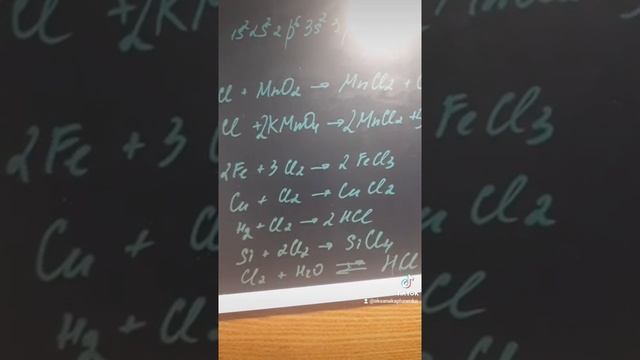 1s²2s²2p⁶3s²3p
Cl + MnO₂ → MnCl₂ +
Cl + 2KMnO₄ → 2MnCl₂ +
2Fe + 3Cl₂ → 2FeCl₃
Cu + Cl₂ → CuCl₂
H₂ + Cl₂ → 2HCl
Si + 2Cl₂ → SiCl₄
Cl₂ + H₂O ⇄ HCl
@oksanakaplunenko